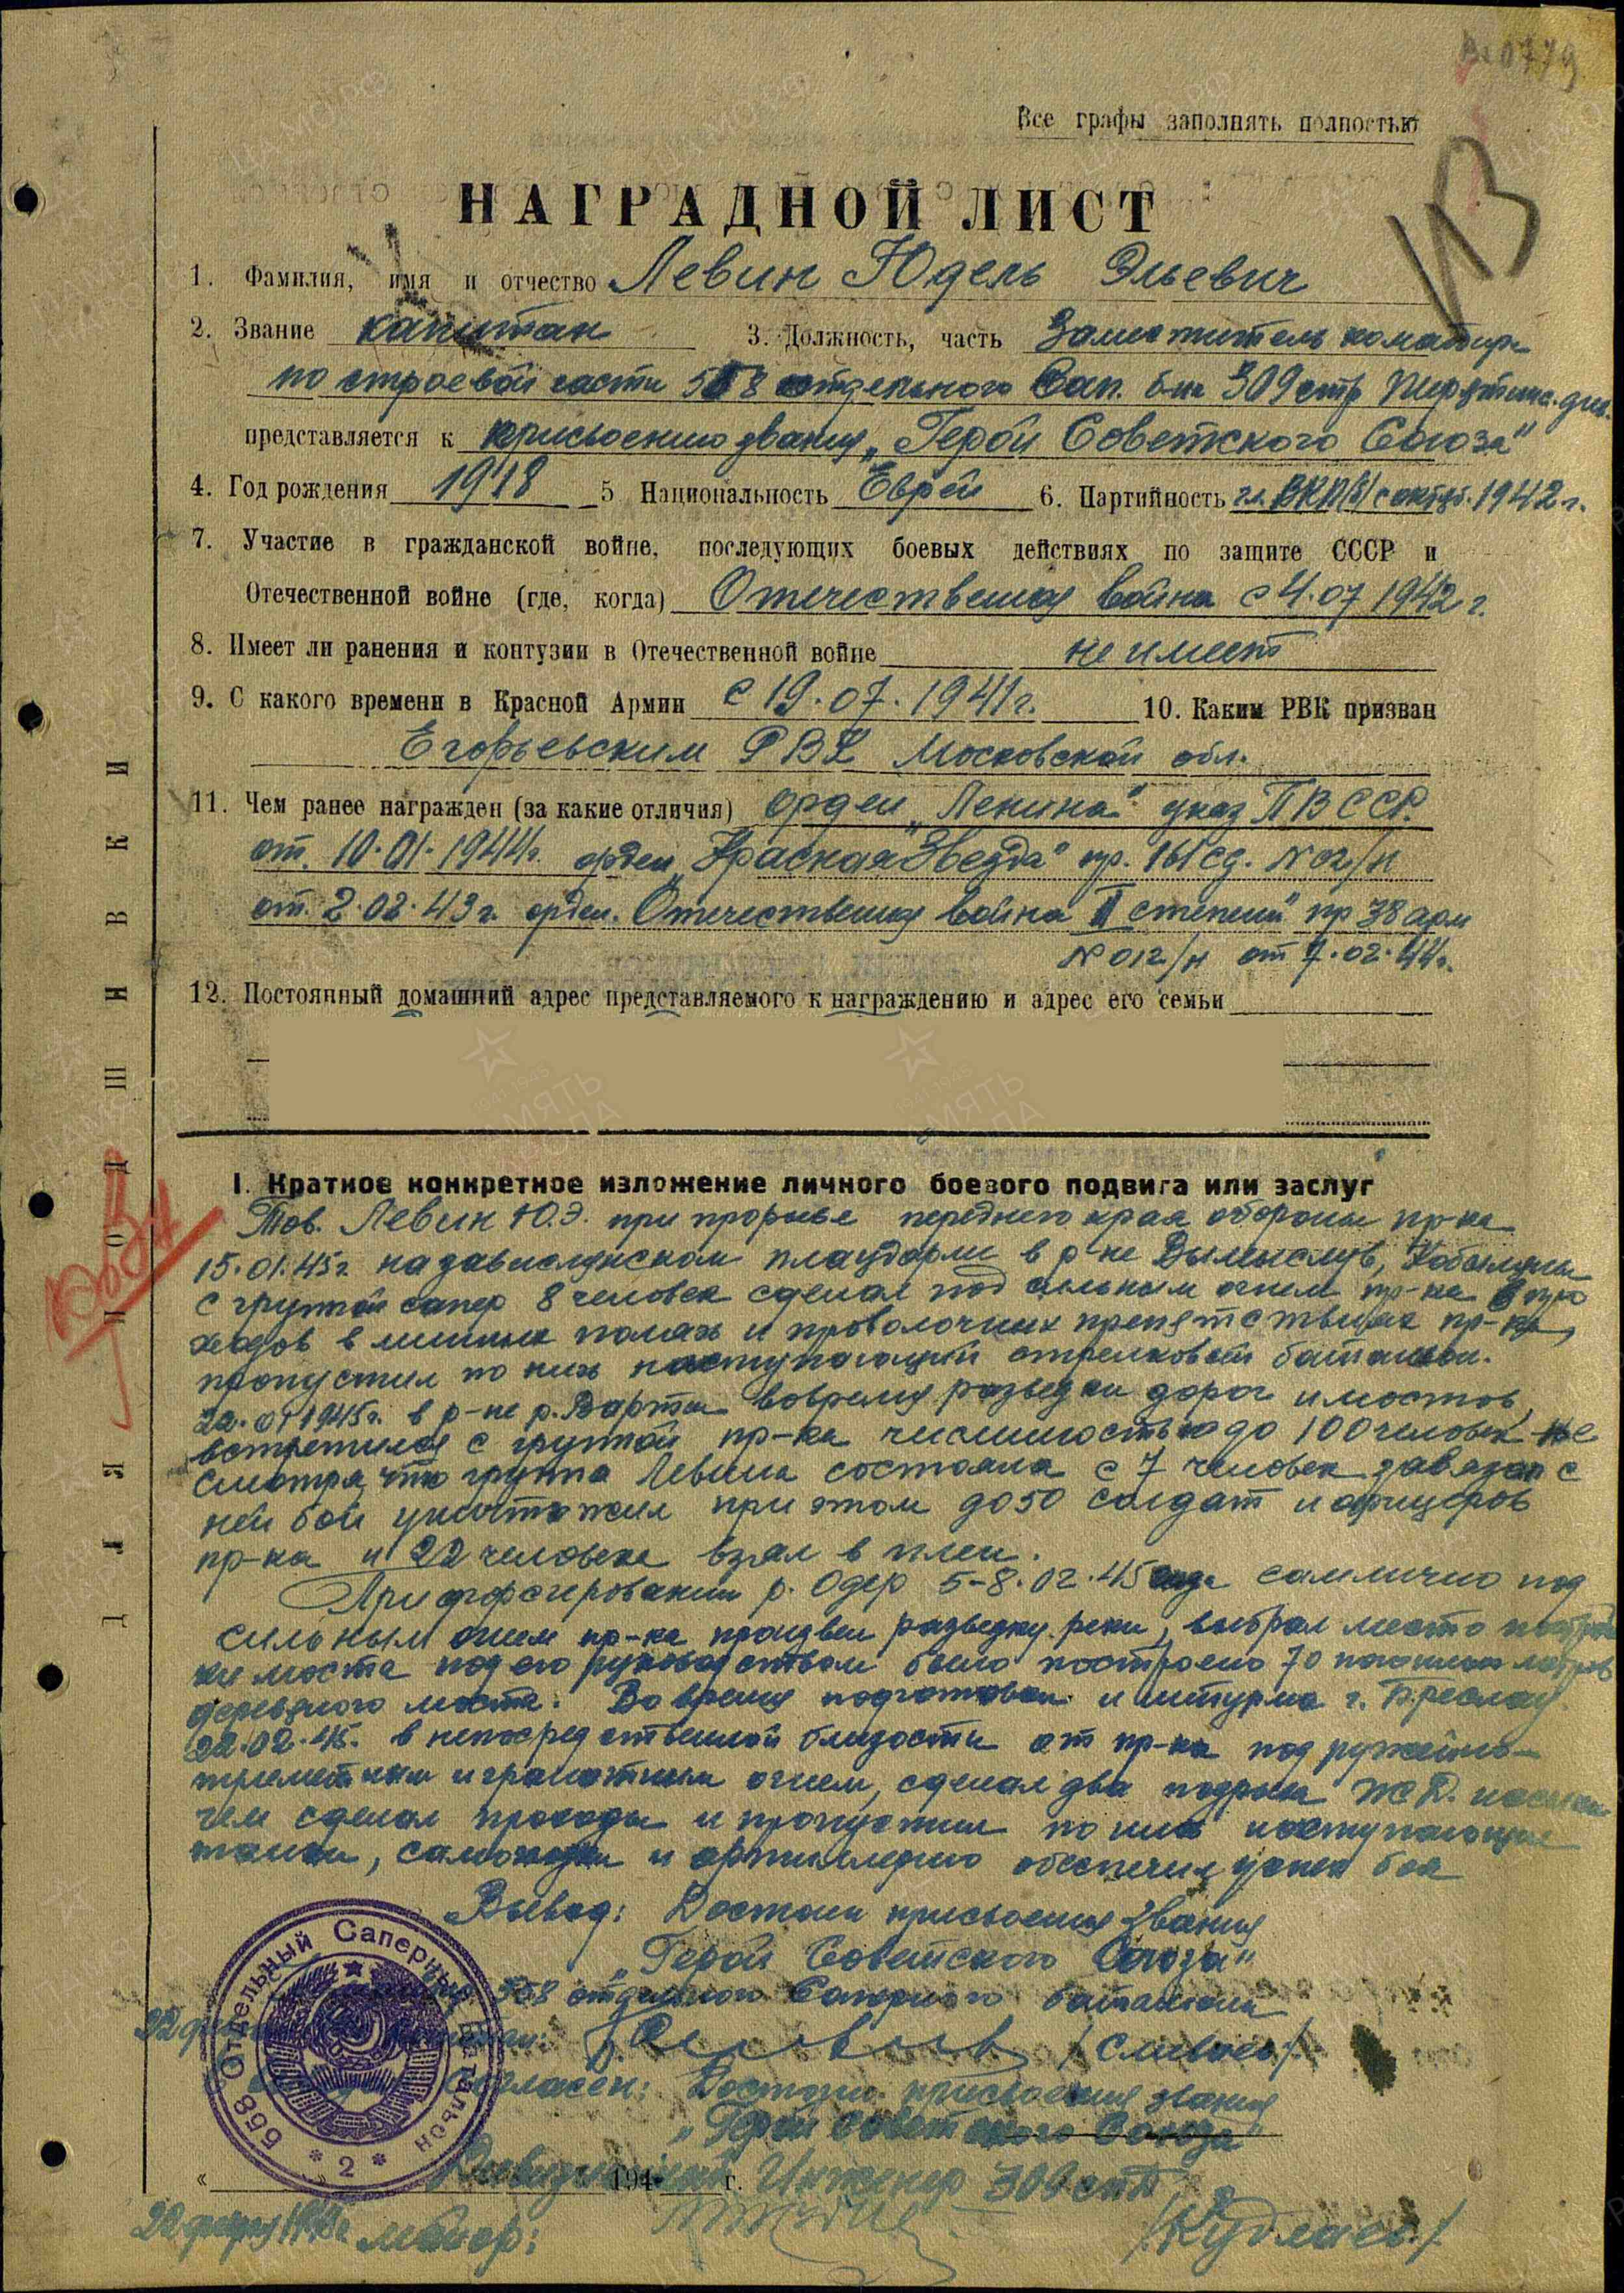 Все графы заполнять полностью
НАГРАДНОЙ ЛИСТ
1. Фамилия, имя и отчество Левин Юдель Эльевич
2. Звание капитан 3. Должность, часть Заместитель командира
по строевой части 558 отдельного Сап. б-на 309 стр Пирятинс. див.
представляется к присвоению звания „Герой Советского Союза"
4. Год рождения 1918 5 Национальность Еврей 6. Партийность чл. ВКП(б) с октяб. 1942 г.
7. Участие в гражданской войне, последующих боевых действиях по защите СССР и
Отечественной войне (где, когда) Отечественная война с 4.07 1942 г.
8. Имеет ли ранения и контузии в Отечественной войне не имеет
9. С какого времени в Красной Армии с 19.07.1941г. 10. Каким РВК призван
Егорьевским РВК Московской обл.
11. Чем ранее награжден (за какие отличия) орден „Ленина" указ ПВССР.
от. 10.01.1944г. орден „Красная Звезда" пр. 161 сд. №02/н
от. 2.02.43г. орден. Отечественная война II степени" пр 38 арм
№012/н от 7.02.44г.
12. Постоянный домашний адрес представляемого к награждению и адрес его семьи
I. Краткое конкретное изложение личного боевого подвига или заслуг
Тов. Левин Ю.Э. при прорыве переднего края обороны пр-ка
15.01.45г. на завислинском плацдарме в р-не Вымыслув, Кобыляны
с группой сапер 8 человек сделал под сильным огнем пр-ка 8 про
ходов в минных полях и проволочных препятствиях пр-ка,
пропустил по них наступающий стрелковой батальон.
22.01 1945г. в р-не р. Варта вовремя разведки дорог и мостов,
встретился с группой пр-ка численностью до 100 человек не
смотря, что группа Левина состояла с 7 человек завязал с
ней бой уничтожил при этом до 50 солдат и офицеров
пр-ка и 22 человека взял в плен.
При форсировании р. Одер 5-8.02.45 года самлично под
сильным огнем пр-ка произвел разведку реки, выбрал место построй
ки моста под его руководством было построено 70 погонных метров
деревяного моста. Во время подготовки и штурма г. Бреслау
22.02.45. в непосредственной близости от пр-ка под ружейно-
пулеметным и гранатным огнем, сделал два подрыва Ж.Д. насыпи
чем сделал проходы и пропустил по них наступающие
танки, самоходки и артиллерию обеспечил успех боя
Вывод: Достоин присвоения звания
„Герой Советского Союза"
558 отдельного Саперного батальона
558 Отдельный Саперный Батальон
* 2 *
Согласен: Достоин присвоения звания
„Герой Советского Союза"
« 194 г.
Дивизионный Инженер 309 стд
майор:
ДЛЯ ПОДШИВКИ